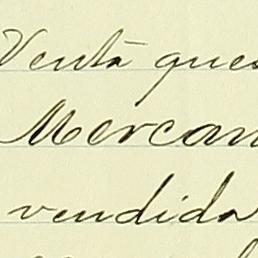 Venta ques
Mercan
vendida